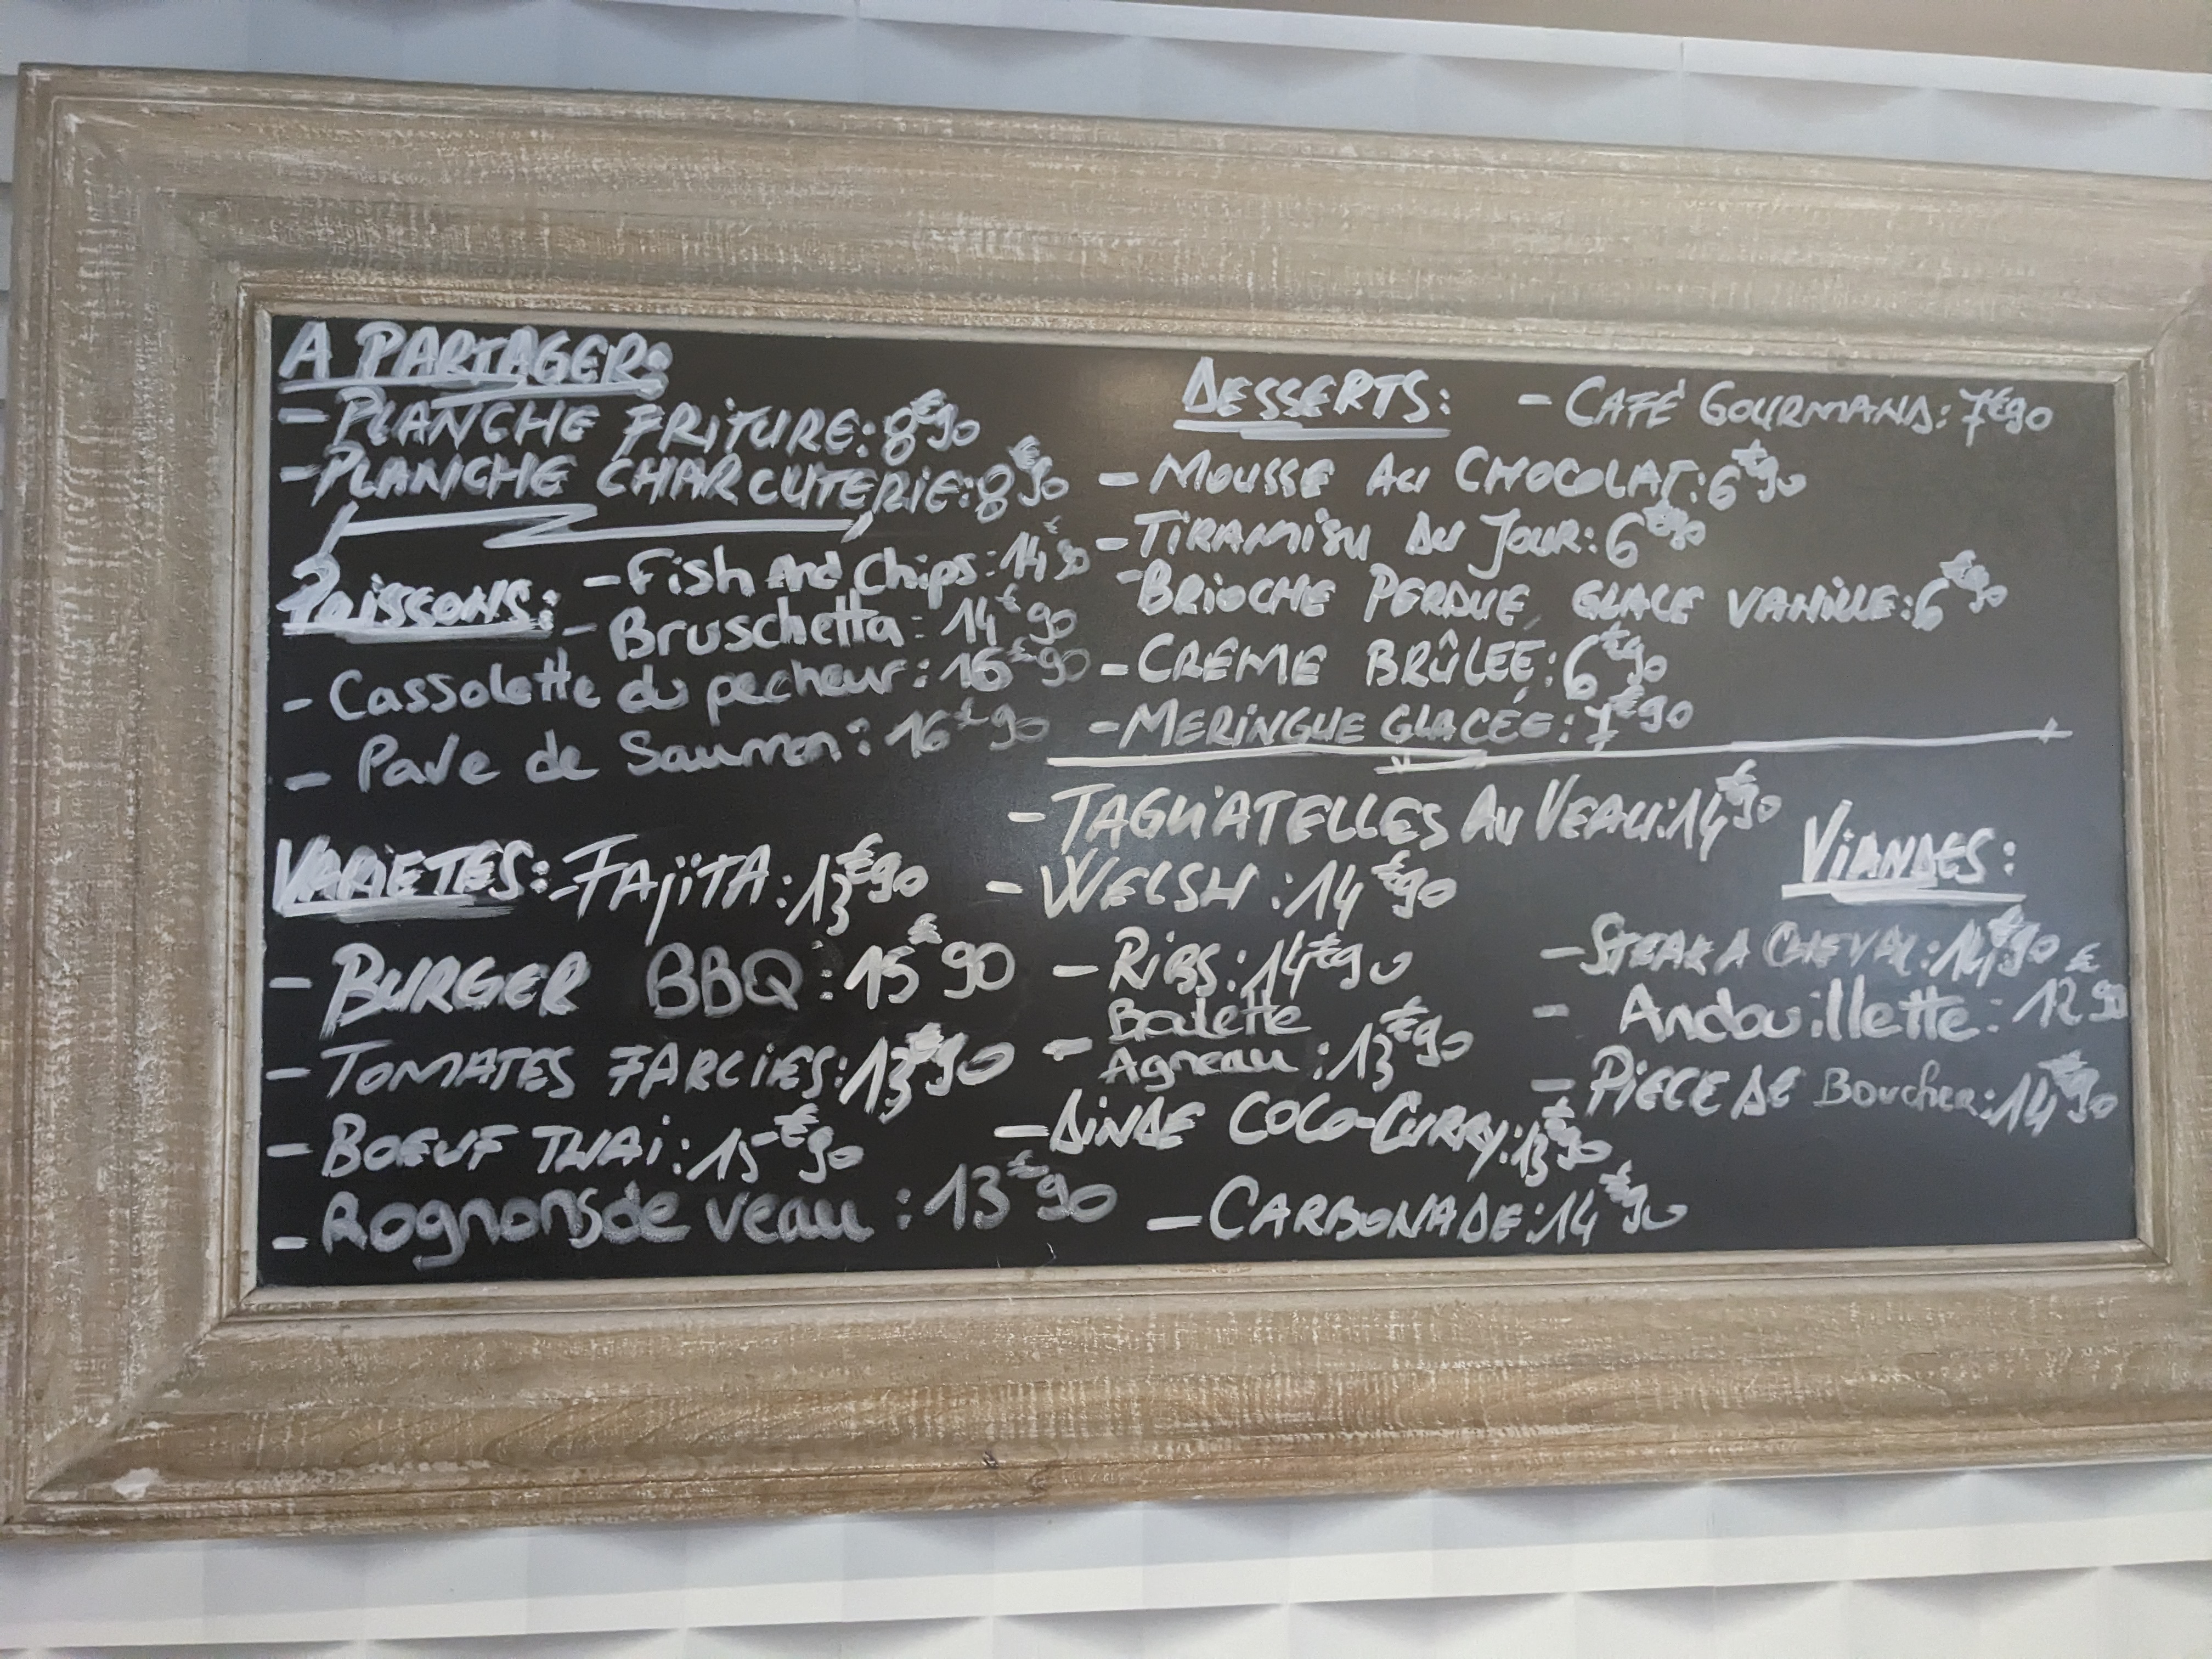 A PARTAGER:
- PLANCHE FRITURE: 8€90
- PLANCHE CHARCUTERIE: 8€90
POISSONS: - Fish And Chips: 14€90
- Bruschetta: 14€90
- Cassolette du pecheur: 16€90
- Pave de Saumon: 16€90
DESSERTS: - CAFÉ GOURMAND: 7€90
- MOUSSE AU CHOCOLAT: 6€90
- TIRAMISU DU JOUR: 6€90
- BRIOCHE PERDUE, GLACE VANILLE: 6€90
- CREME BRÛLÉE: 6€90
- MERINGUE GLACÉE: 7€90
VARIETES: - FAJITA: 13€90
- BURGER BBQ: 15€90
- TOMATES FARCIES: 13€90
- BOEUF THAI: 15€90
- Rognons de veau: 13€90
- TAGLIATELLES AU VEAU: 14€90
- WELSH: 14€90
- RIBS: 14€90
- Boulette
Agneau: 13€90
- DINDE COCO-CURRY: 13€90
- CARBONADE: 14€90
VIANDES:
- STEAK A CHEVAL: 14€90
- Andouillette: 12€90
- PIECE DE Boucher: 14€90